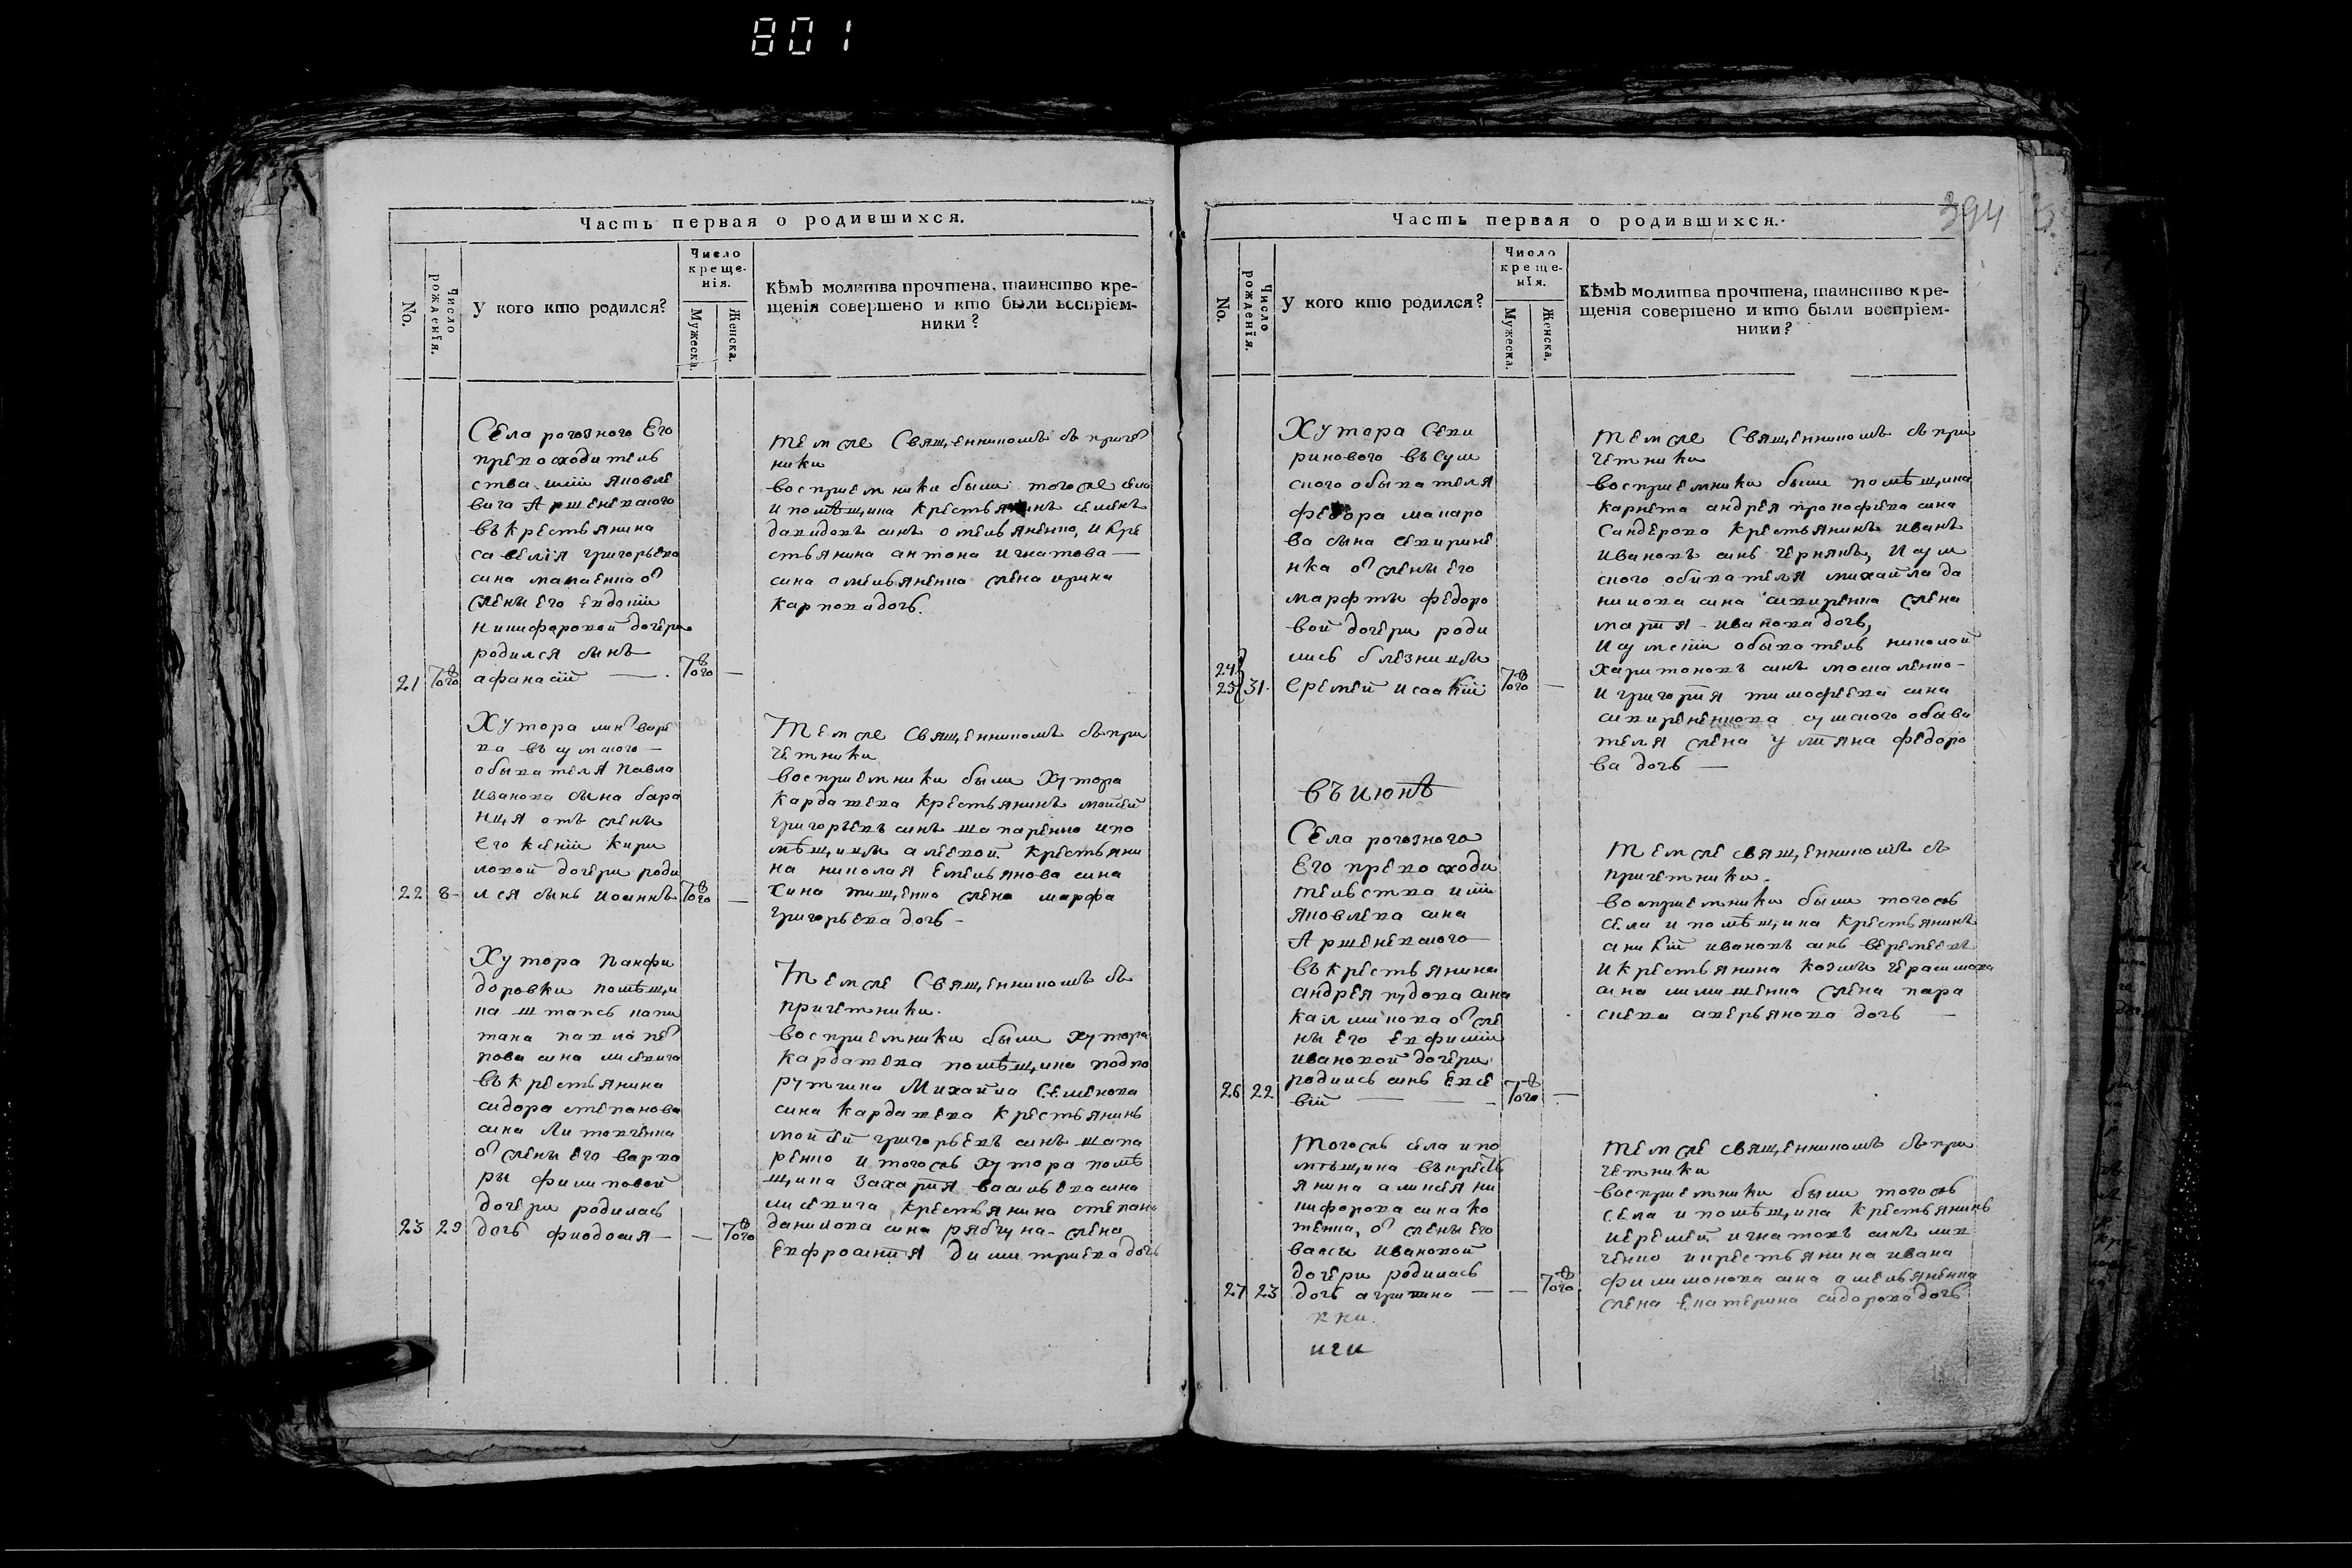 801
Часть первая о родившихся.
No.
Число рожденїя.
У кого кто родился?
Число
креще-
нія.
Мужеска.
Женска.
кѢмЪ молитва прочтена, таинство кре-
щенія совершено и кто были воспріем-
ники?
Села рогозного Его
превосходитель
ства иліи яковле
вича Аршеневского
въ крестьянина
савелія григорьева
сина мапаенка о͡т
жены его евдокіи
никифоровой дочери
родился сынъ
21 того афанасій — того —
темже Священникомъ съ приче͡т
ники
восприемники были тогоже села
и помѣщика крестьянинъ семенъ
давидовъ синъ омельяненко, и кре
стьянина антона игнатова —
сина омельяненка жена ирина
карповадочь.
Хутора
ка въ сумского —
обывателя Павла
иванова сына бара
нця отъ жены
его ксеніи кири
ловой дочери роди
22 8 - лся сынъ иоаннъ того —
Темже Священникомъ съ при
четники
восприемники были Хутора
кардашева крестьянинъ мойсей
григорьевъ синъ шапаренко и по
мѣщицы алеевой крестьяни
на николая Емельянова сина
тищенка жена марфа
григорьева дочь -
Хутора Панфи
доровки помѣщи
ка штапсъ капи
тана павла пе͡т
рова сина лисевича
въ крестьянина
сидора степанова
сина Литовченка
о͡т жены его варва
ры филиповой
дочери родилась
23 29 дочь фиодосия — — того
Темже Священникомъ съ
причетники.
восприемники были хутора
кардашева помѣщика подпо
рутчика Михайла Семенова
сина кардашева крестьянинъ
мойсей григорьевъ синъ шапа
ренко и тогожъ хутора помѣ
щика Захарія васильева сина
лисевича крестьянина степана
данилова сина рябчуна - жена
Евфросинія димитриева дочь
Часть первая о родившихся.
394
No.
Число рожденїя.
У кого кто родился?
Число
креще-
нїя.
Мужеска.
Женска.
кѢмЪ молитва прочтена, таинство кре-
щенія совершено и кто были воспріем-
ники?
Хутора Секи
ринового въ сум
ского обывателя
федора макаро
ва сына секирине
нка о͡т жены его
марфты федоро
вой дочери роди
лись близницы
24
25 31. еремей исаакій того —
темже Священникомъ съ при
четники
восприемники были помѣщика
карнета андрея прокофьева сина
Сандерова крестьянинъ иванъ
ивановъ синъ чернякъ, и сум
ского обивателя михайла да
нилова сина жена
марія - иванова дочь,
и сумскій обыватель николай
харитоновъ синъ москаленко -
и григорія тимофеева сина
сумского обыва
теля жена уліяна федоро
ва дочь —
въ июнѣ
Села рогозного
Его превосходи
тельства иліи
яковлева сина
Аршеневского
въ крестьянина
андрея
калмикова о͡т же
ны его евфиміи
ивановой дочери
родись синъ Евсе
26 22 вій — — того —
темже священникомъ съ
причетники.
восприемники были тогожъ
села и помѣщика крестьянинъ
аникій ивановъ синъ веремеевъ
и крестьянина козмы герасимова
сина жена пара
скева аверьянова дочь —
Тогожъ села и по
мѣщика въ кресть
янина алексея ни
кифорова сина ко
тенка, о͡т жены его
васы ивановой
дочери родилась
27 23 дочь агрипина — — того
темже священникомъ съ при
четники
восприемники были тогожъ
села и помѣщика крестьянинъ
иеремей игнатовъ синъ
ченко и крестьянина ивана
филимонова сина омельяненка
жена Екатерина сидоровадочь
кни.
иги